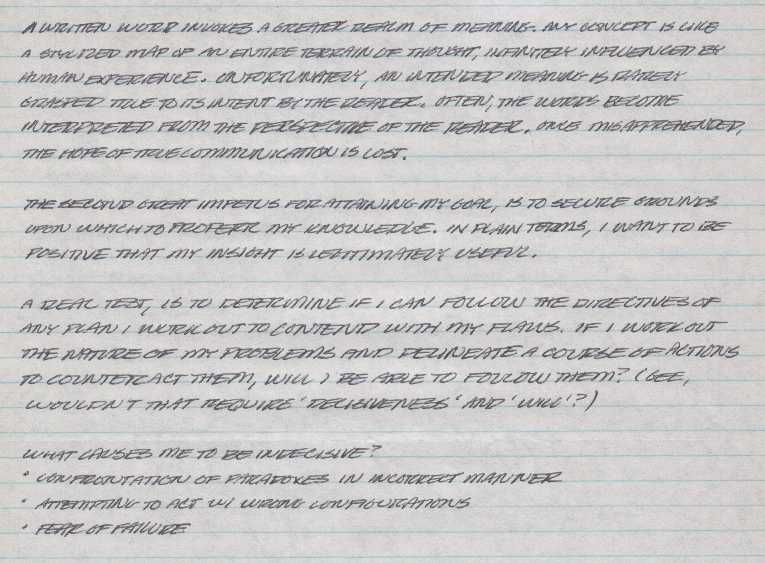 A WRITTEN WORD INVOKES A GREATER REALM OF MEANING. ANY CONCEPT IS LIKE
A STYLIZED MAP OF AN ENTIRE TERRAIN OF THOUGHT, INFINITELY INFLUENCED BY
HUMAN EXPERIENCE. UNFORTUNATELY, AN INTENDED MEANING IS RARELY
GRASPED TRUE TO ITS INTENT BY THE READER. OFTEN, THE WORDS BECOME
INTERPRETED FROM THE PERSPECTIVE OF THE READER. ONCE MISAPPREHENDED,
THE HOPE OF TRUE COMMUNICATION IS LOST.
THE SECOND GREAT IMPETUS FOR ATTAINING MY GOAL, IS TO SECURE GROUNDS
UPON WHICH TO PROFERR MY KNOWLEDGE. IN PLAIN TERMS, I WANT TO BE
POSITIVE THAT MY INSIGHT IS LEGITIMATELY USEFUL.
A REAL TEST, IS TO DETERMINE IF I CAN FOLLOW THE DIRECTIVES OF
ANY PLAN I WORK OUT TO CONTEND WITH MY FLAWS. IF I WORK OUT
THE NATURE OF MY PROBLEMS AND DELINEATE A COURSE OF ACTIONS
TO COUNTERACT THEM, WILL I BE ABLE TO FOLLOW THEM? (GEE,
WOULDN'T THAT REQUIRE 'DECISIVENESS' AND 'WILL'?)
WHAT CAUSES ME TO BE INDECISIVE?
• CONFRONTATION OF PARADOXES IN INCORRECT MANNER
• ATTEMPTING TO ACT W/ WRONG CONFIGURATIONS
• FEAR OF FAILURE